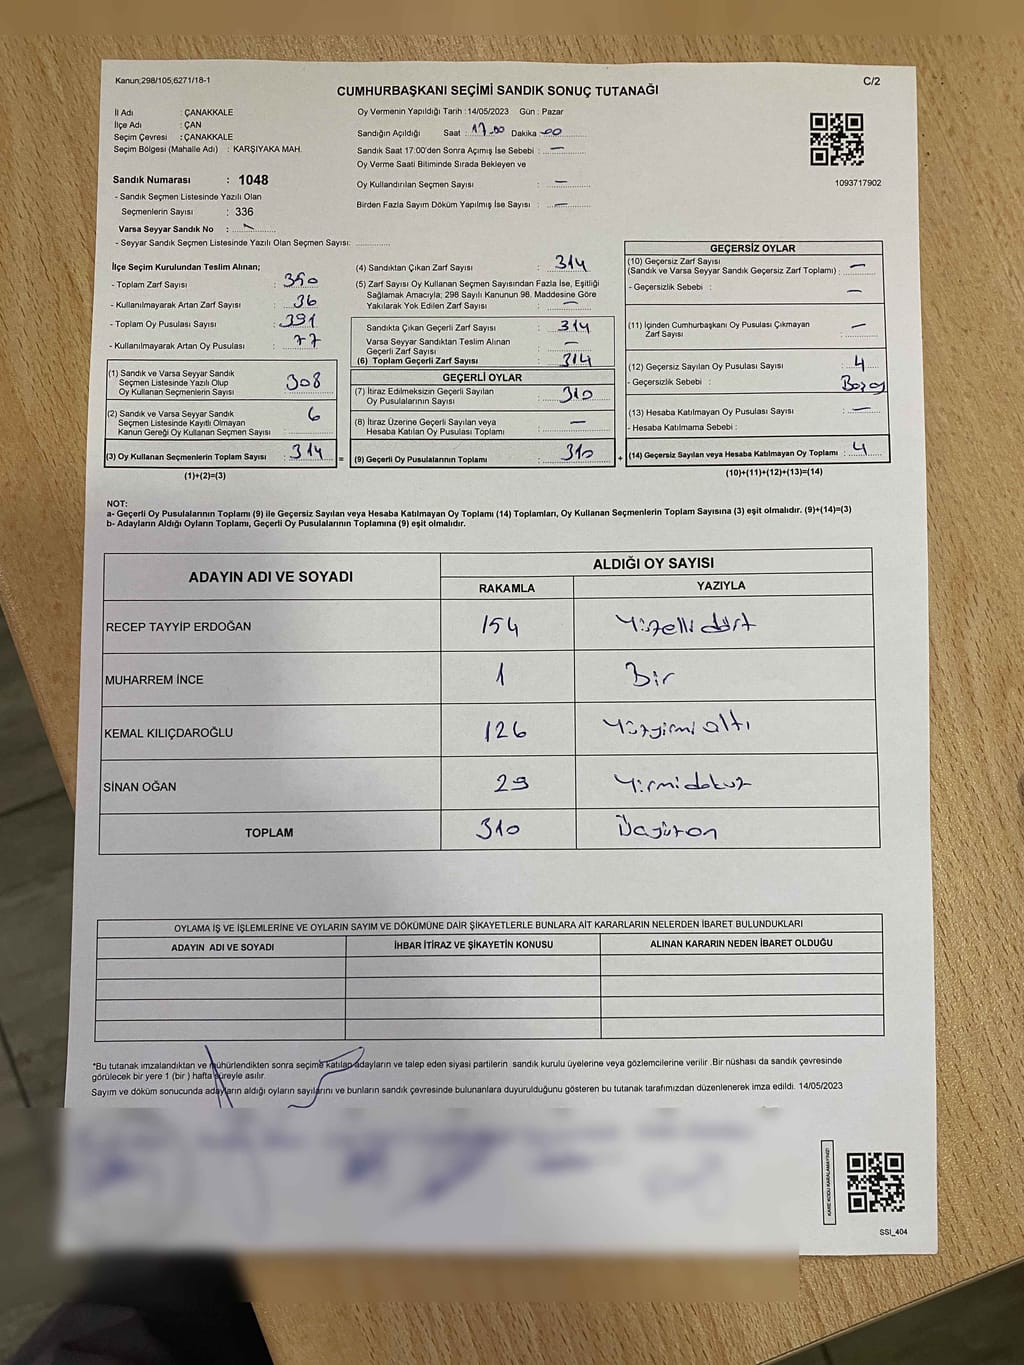 Kanun;298/105,6271/18-1
C/2
CUMHURBAŞKANI SEÇİMİ SANDIK SONUÇ TUTANAĞI
İl Adı : ÇANAKKALE
İlçe Adı : ÇAN
Seçim Çevresi : ÇANAKKALE
Seçim Bölgesi (Mahalle Adı) : KARŞIYAKA MAH.
Sandık Numarası : 1048
- Sandık Seçmen Listesinde Yazılı Olan
Seçmenlerin Sayısı : 336
Varsa Seyyar Sandık No :
- Seyyar Sandık Seçmen Listesinde Yazılı Olan Seçmen Sayısı:
Oy Vermenin Yapıldığı Tarih : 14/05/2023 Gün : Pazar
Sandığın Açıldığı Saat : 17.00 Dakika 00
Sandık Saat 17:00'den Sonra Açımış İse Sebebi : —
Oy Verme Saati Bitiminde Sırada Bekleyen ve
Oy Kullandırılan Seçmen Sayısı : —
Birden Fazla Sayım Döküm Yapılmış İse Sayısı : —
1093717902
İlçe Seçim Kurulundan Teslim Alınan;
- Toplam Zarf Sayısı : 350
- Kullanılmayarak Artan Zarf Sayısı : 36
- Toplam Oy Pusulası Sayısı : 391
- Kullanılmayarak Artan Oy Pusulası : 77
(1) Sandık ve Varsa Seyyar Sandık
Seçmen Listesinde Yazılı Olup
Oy Kullanan Seçmenlerin Sayısı : 308
(2) Sandık ve Varsa Seyyar Sandık
Seçmen Listesinde Kayıtlı Olmayan
Kanun Gereği Oy Kullanan Seçmen Sayısı : 6
(3) Oy Kullanan Seçmenlerin Toplam Sayısı : 314 =
(1)+(2)=(3)
(4) Sandıktan Çıkan Zarf Sayısı : 314
(5) Zarf Sayısı Oy Kullanan Seçmen Sayısından Fazla İse, Eşitliği
Sağlamak Amacıyla; 298 Sayılı Kanunun 98. Maddesine Göre
Yakılarak Yok Edilen Zarf Sayısı : —
Sandıkta Çıkan Geçerli Zarf Sayısı : 314
Varsa Seyyar Sandıktan Teslim Alınan
Geçerli Zarf Sayısı : —
(6) Toplam Geçerli Zarf Sayısı : 314
GEÇERLİ OYLAR
(7) İtiraz Edilmeksizin Geçerli Sayılan
Oy Pusulalarının Sayısı : 310
(8) İtiraz Üzerine Geçerli Sayılan veya
Hesaba Katılan Oy Pusulası Toplamı : —
(9) Geçerli Oy Pusulalarının Toplamı : 310 +
GEÇERSİZ OYLAR
(10) Geçersiz Zarf Sayısı
(Sandık ve Varsa Seyyar Sandık Geçersiz Zarf Toplamı) : —
- Geçersizlik Sebebi : —
(11) İçinden Cumhurbaşkanı Oy Pusulası Çıkmayan
Zarf Sayısı : —
(12) Geçersiz Sayılan Oy Pusulası Sayısı : 4
- Geçersizlik Sebebi :
(13) Hesaba Katılmayan Oy Pusulası Sayısı : —
- Hesaba Katılmama Sebebi :
(14) Geçersiz Sayılan veya Hesaba Katılmayan Oy Toplamı : 4
(10)+(11)+(12)+(13)=(14)
NOT:
a- Geçerli Oy Pusulalarının Toplamı (9) ile Geçersiz Sayılan veya Hesaba Katılmayan Oy Toplamı (14) Toplamları, Oy Kullanan Seçmenlerin Toplam Sayısına (3) eşit olmalıdır. (9)+(14)=(3)
b- Adayların Aldığı Oyların Toplamı, Geçerli Oy Pusulalarının Toplamına (9) eşit olmalıdır.
ADAYIN ADI VE SOYADI ALDIĞI OY SAYISI
RAKAMLA YAZIYLA
RECEP TAYYİP ERDOĞAN 154 Yüzellidört
MUHARREM İNCE 1 Bir
KEMAL KILIÇDAROĞLU 126 Yüzyirmialtı
SİNAN OĞAN 29 Yirmidokuz
TOPLAM 310 Üçyüzon
OYLAMA İŞ VE İŞLEMLERİNE VE OYLARIN SAYIM VE DÖKÜMÜNE DAİR ŞİKAYETLERLE BUNLARA AİT KARARLARIN NELERDEN İBARET BULUNDUKLARI
ADAYIN ADI VE SOYADI İHBAR İTİRAZ VE ŞİKAYETİN KONUSU ALINAN KARARIN NEDEN İBARET OLDUĞU
*Bu tutanak imzalandıktan ve mühürlendikten sonra seçime katılan adayların ve talep eden siyasi partilerin sandık kurulu üyelerine veya gözlemcilerine verilir .Bir nüshası da sandık çevresinde
görülecek bir yere 1 (bir ) hafta süreyle asılır.
Sayım ve döküm sonucunda adayların aldığı oyların sayılarını ve bunların sandık çevresinde bulunanlara duyurulduğunu gösteren bu tutanak tarafımızdan düzenlenerek imza edildi. 14/05/2023
KARE KODU KARALAMAYINIZ!
SSİ_404